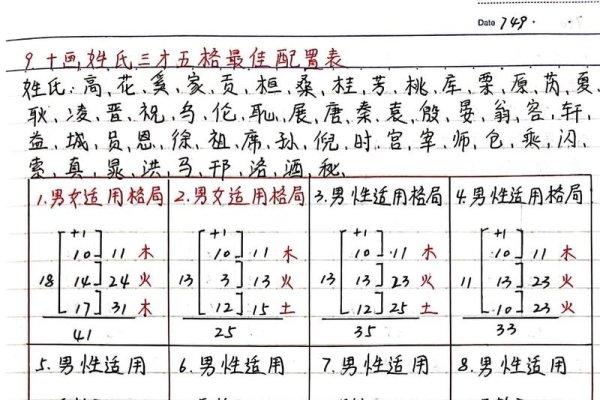 Date 749.
9.十画姓氏三才五格最佳配置表
姓氏:高、花、奚、家、贡、桓、桑、桂、芳、桃、库、栗、原、芮、夏、
耿、凌、晋、祝、乌、伦、耻、展、唐、秦、袁、殷、晏、翁、容、轩、
益、城、员、恩、徐、祖、席、孙、倪、时、宫、宰、师、仓、乘、闪、
索、真、晁、洪、马、邗、洛、酒、秘、
1.男女适用格局 2.男女适用格局 3.男性适用格局 4.男性适用格局
+1 +1 +1 +1
10 11 木 10 11 木 10 11 木 10 11 木
18 14 24 火 13 3 13 火 13 13 23 火 11 13 23 火
17 31 木 12 15 土 12 25 土 10 23 火
41 25 35 33
5.男性适用 6.男性适用 7.男性适用 8.男性适用